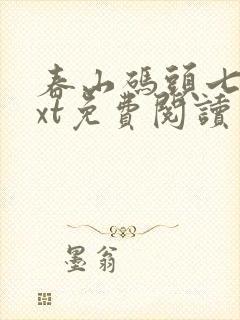 春山碼頭七
xt免費閱讀
墨翁